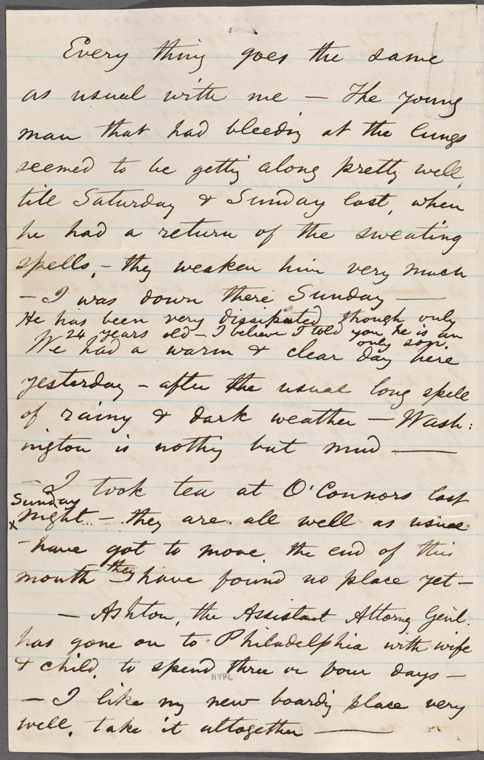 Every thing goes the same
as usual with me — The young
man that had bleeding at the lungs
seemed to be getting along pretty well,
till Saturday & Sunday last, when
he had a return of the sweating
spells, – they weaken him very much
– I was down there Sunday —
He has been very dissipated though only
24 years old – I believe I told you he is an
only son.
We had a warm & clear day here
yesterday – after the usual long spell
of rainy & dark weather — Wash:
ington is nothing but mud ——
– I took tea at O'Connors last
Sunday
x night – they are all well as usual
– have got to move the end of this
month they have found no place yet –
— Ashton, the Assistant Attorny Genl.
has gone on to Philadelphia with wife
& child, to spend three or four days –
NYPL
– I like my new boarding place very
well, take it altogether ——